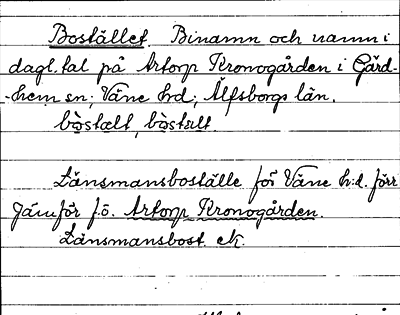 Bostället Binamn och namn i
dagl. tal på Artorp Kronogården i Gärd-
hem sn; Väne hd; Älfsborgs län.
Länsmansboställe för Väne h:d. förr
Jämför f.ö. Artorp Kronogården.
Länsmansbost. ek.